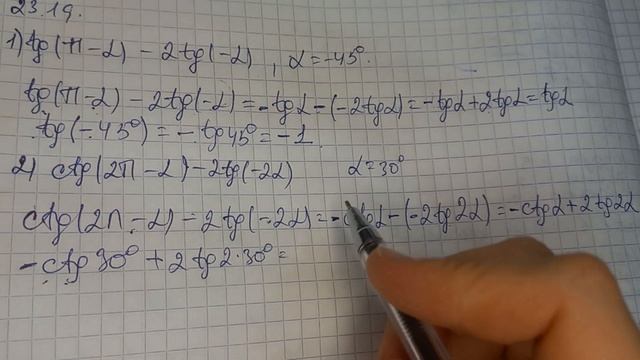 23.19.
1) tg(π-α) - 2tg(-α), α=-45°.
tg(π-α) - 2tg(-α) = -tgα - (-2tgα) = -tgα + 2tgα = tgα
tg(-45°) = -tg45° = -1.
2) ctg(2π-α) - 2tg(-2α) α=30°
ctg(2π-α) - 2tg(-2α) = -ctgα - (-2tg2α) = -ctgα + 2tg2α
-ctg30° + 2tg2·30° =